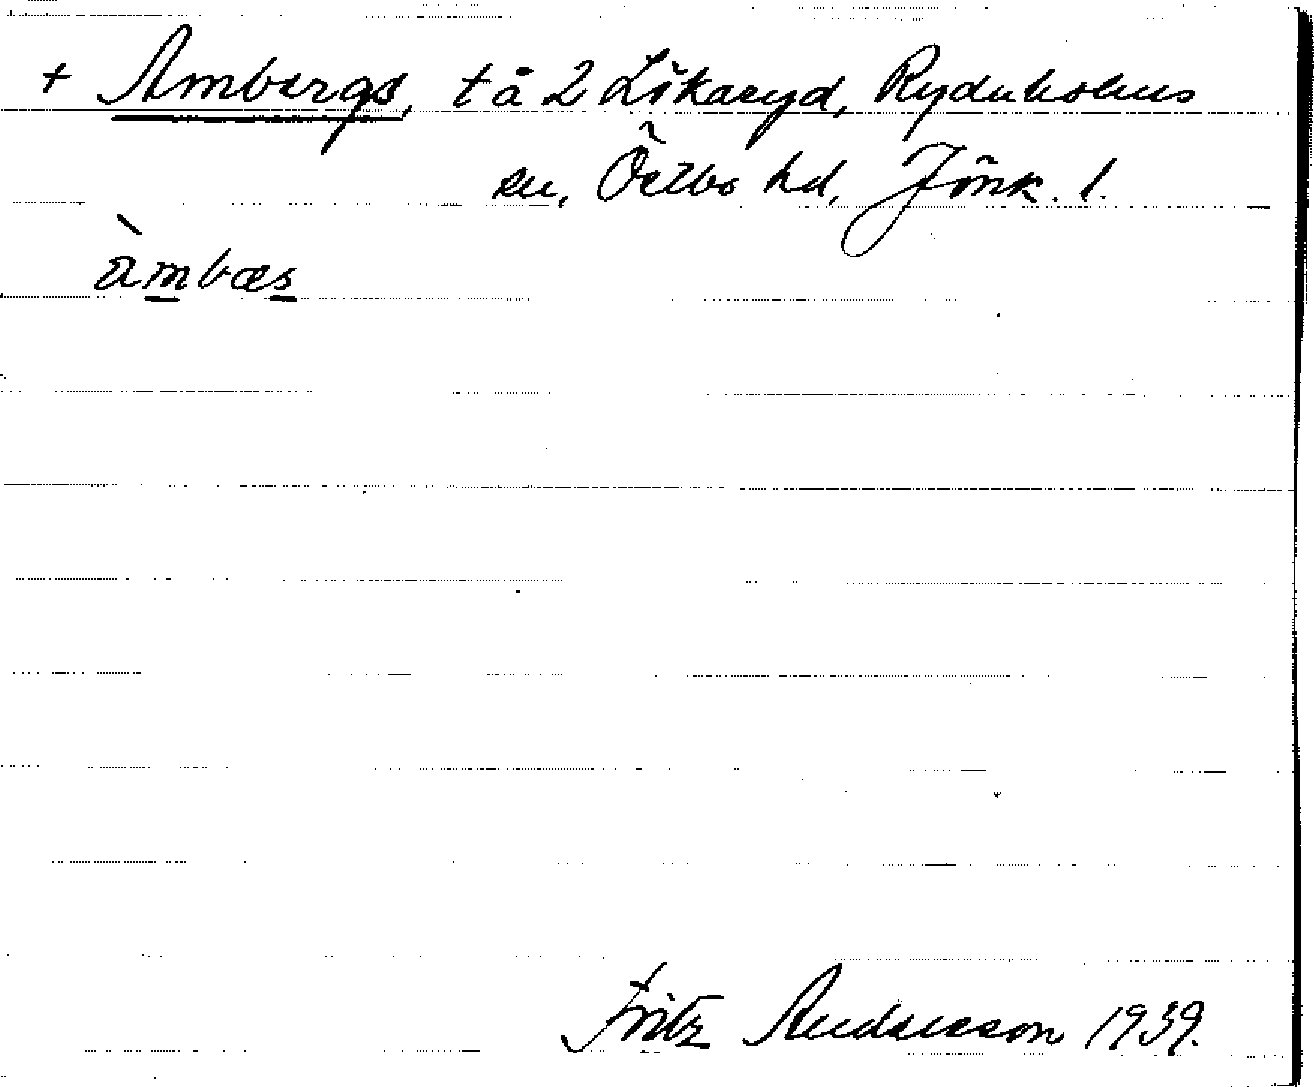 + Ambergs, t å 2 Likaryd, Rydaholms
sn, Östbo hd, Jönk. l.
àmbæs
Fritz Andersson 1939.